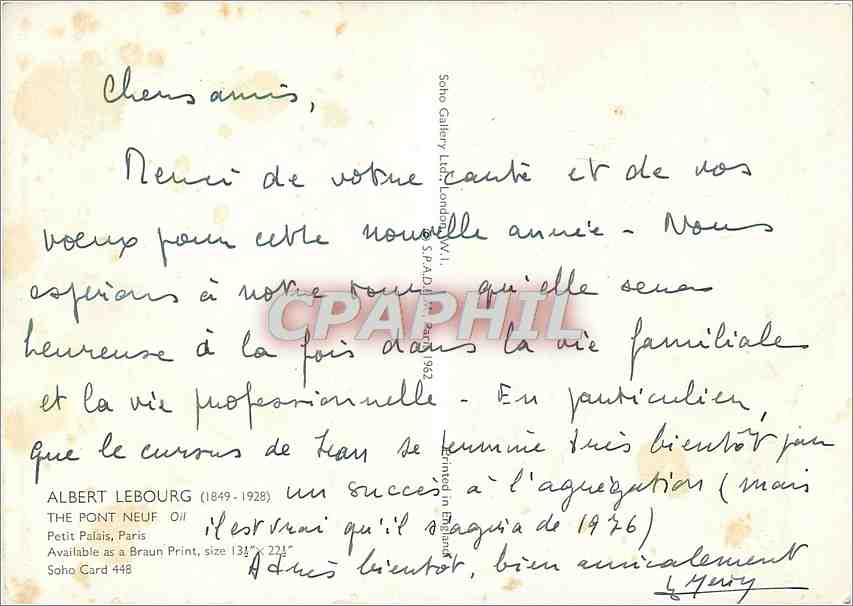 Chers amis,
Merci de votre carte et de vos
vœux pour cette nouvelle année - Nous
espérons à notre tour qu'elle sera
heureuse à la fois dans la vie familiale
et la vie professionnelle - En particulier,
que le cursus de Jean se termine très bientôt par
un succès à l'agrégation (mais
il est vrai qu'il s'agira de 1976)
A très bientôt, bien amicalement
ALBERT LEBOURG (1849-1928)
THE PONT NEUF Oil
Petit Palais, Paris
Available as a Braun Print, size 13½"× 22½"
Soho Card 448
Soho Gallery Ltd., London, W.1.
© S.P.A.D.E.M. Paris 1962
Printed in England
CPAPHIL